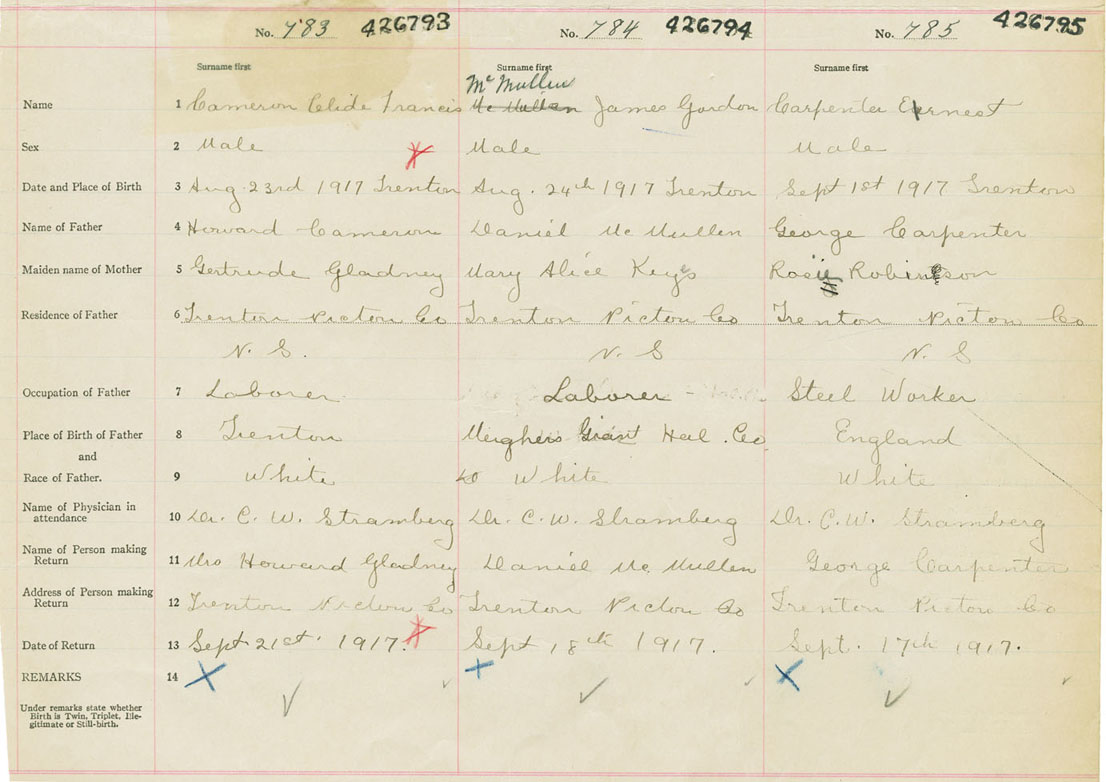 No. 783 426793 No. 784 426794 No. 785 426795
Surname first Surname first Surname first
Mc Mullen
Name 1 Cameron Clide Francis Mc Mullan James Gordon Carpenter Earnest
Sex 2 Male Male Male
Date and Place of Birth 3 Aug. 23rd 1917 Trenton Aug. 24th 1917 Trenton Sept 1st 1917 Trenton
Name of Father 4 Howard Cameron Daniel Mc Mullen George Carpenter
Maiden name of Mother 5 Gertrude Gladney Mary Alice Keys Rosie Robinson
Residence of Father 6 Trenton Picton Co Trenton Picton Co Trenton Picton Co
N. S. N. S N. S
Occupation of Father 7 Laborer Laborer Steel Worker
Place of Birth of Father 8 Trenton Meighers Grant Co England
and
Race of Father. 9 White White White
Name of Physician in
attendance 10 Dr. C. W. Stramberg Dr. C. W. Stramberg Dr. C. W. Stramberg
Name of Person making
Return 11 Mrs Howard Gladney Daniel Mc Mullen George Carpenter
Address of Person making
Return 12 Trenton Picton Co Trenton Picton Co Trenton Picton Co
Date of Return 13 Sept 21st 1917. Sept 18th 1917. Sept. 17th 1917.
REMARKS 14
Under remarks state whether
Birth is Twin, Triplet, Ille-
gitimate or Still-birth.